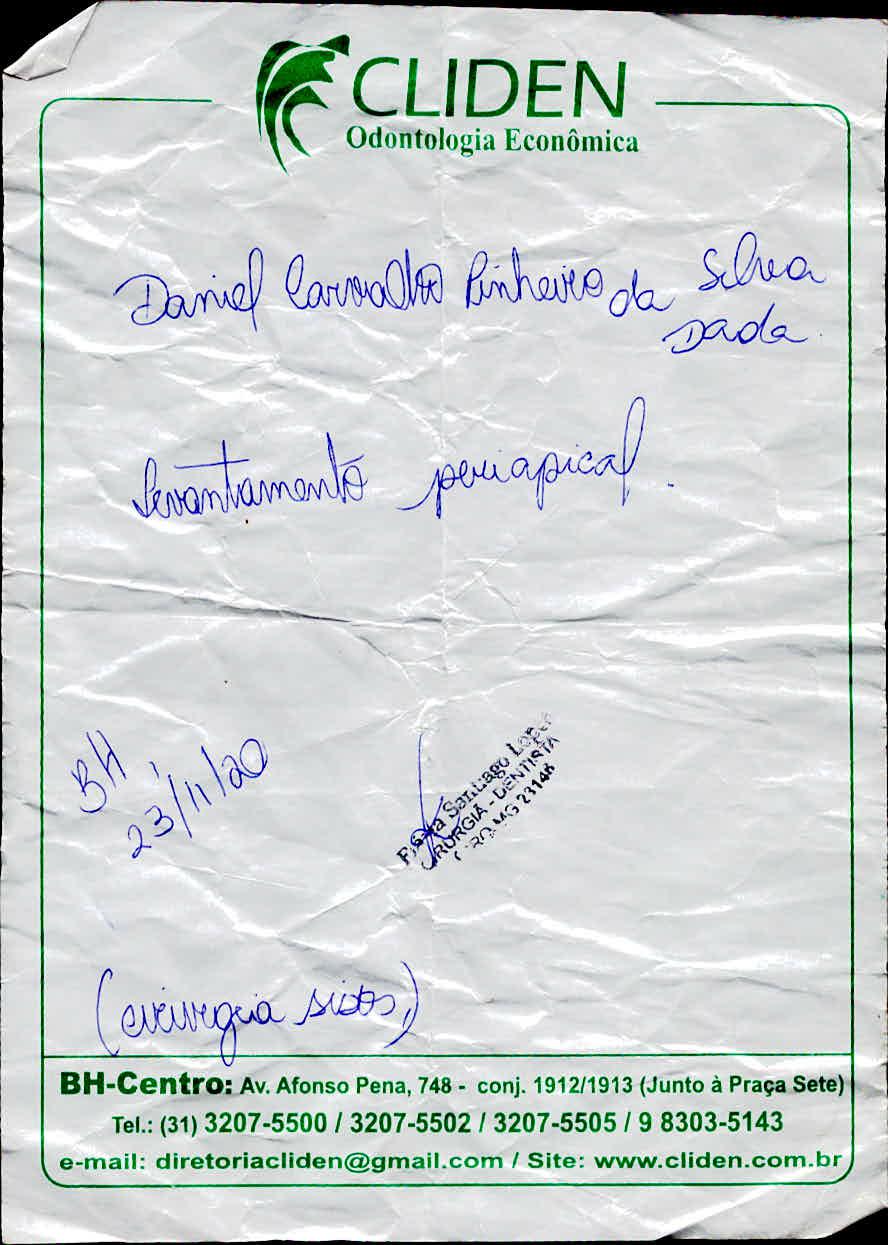 CLIDEN
Odontologia Econômica
Daniel Carvalho Pinheiro da Silva
Dada.
Levantamento periapical.
BH,
23/11/20
Santiago Lopes
CIRURGIÃ - DENTISTA
CRO-MG 23148
(cirurgia sisos)
BH-Centro: Av. Afonso Pena, 748 - conj. 1912/1913 (Junto à Praça Sete)
Tel.: (31) 3207-5500 / 3207-5502 / 3207-5505 / 9 8303-5143
e-mail: diretoriacliden@gmail.com / Site: www.cliden.com.br